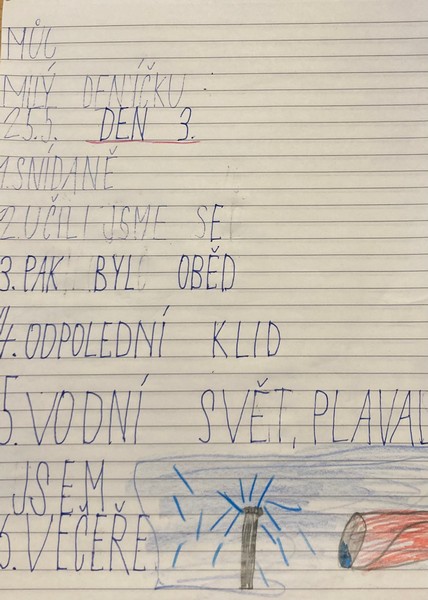 MŮJ
MILÝ DENÍČKU
25.5. DEN 3.
1.SNÍDANĚ
2.UČILI JSME SE
3.PAK BYL OBĚD
4.ODPOLEDNÍ KLID
5.VODNÍ SVĚT, PLAVAL
JSEM
6.VEČEŘE